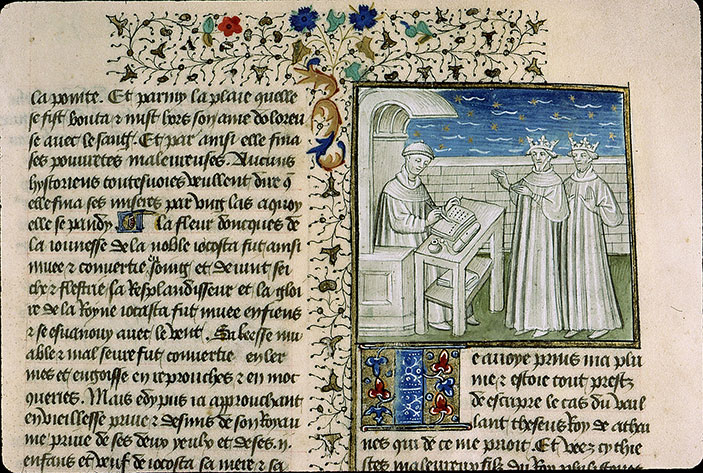 la pointe. Et parmy la plaie quelle
se fist bouta & mist hors son ame doloreu
se avec le sang. Et par ainsi elle fina
ses pouvretes maleureuses. Aucuns
hystoriens toutesvoies veullent dire q̃
elle fina ses miseres par vng las a quoy
elle se pandy La fleur doncques de
la iounesse de la noble iocosta fut ainsi
muee & convertie en soing et devint sei
che & flestrie la Resplandisseur et la gloi
re de la Royne iocasta fut muee en fiens
& se esvanouy avec le vent. Sa leesse mu
able & mal seure fut convertie en ler
mes et engoisse en reprouches & en moc
queries. Mais edypus ia approuchant
en vieillesse prive & desmis de son Royau
me prive de ses deux yeulx et de ses
enfans et veuf de iocosta sa mere & sa
Ie avoye prins ma plu
me & estoie tout prest
de escripre le cas du vail
lant theseus Roy de athe
nes qui de ce me prioit. Et veez cy thie
stes maleureux filz du Roy